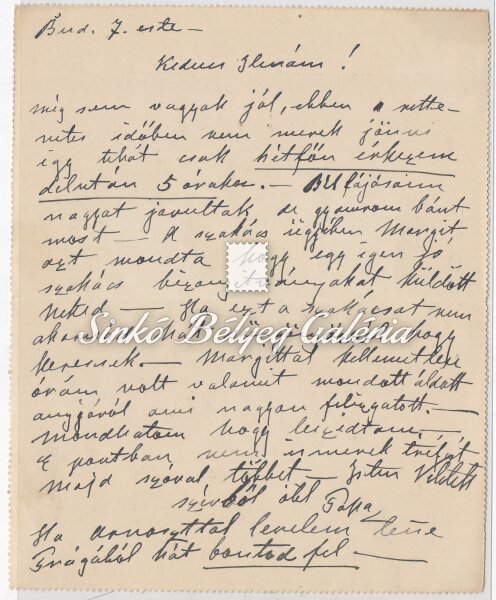 Bud. 7. este –
Kedves Ilmám!
még sem vagyok jól, ebben a rette-
netes időben nem merek jönni
így tehát csak hétfőn érkezem
délután 5 órakor. – Bélfájásaim
nagyot javultak de gyomrom bánt
most – A szakács ügyében Margit
azt mondta hogy egy igen jó
szakács bizonyítványokat küldött
neked – Ha ezt a szakácsot nem
hogy
keresnek. – Margittal kellemetlen
órám volt valamit mondott áldott
anyjáról ami nagyon felizgatott. –
Mondhatom hogy
E pontban nem ismerek tréfát
majd szóval többet – Isten Veletek
szívből ölel Papa
Ha levelem
Prágából hát bontsd fel –
Sinkó Bélyeg Galéria